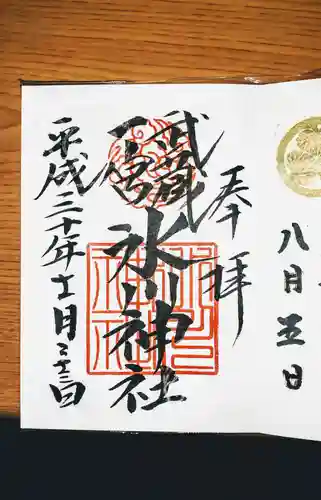 八月五日
奉拝
武蔵
一宮
氷川神社
平成三十年十一月二十三日